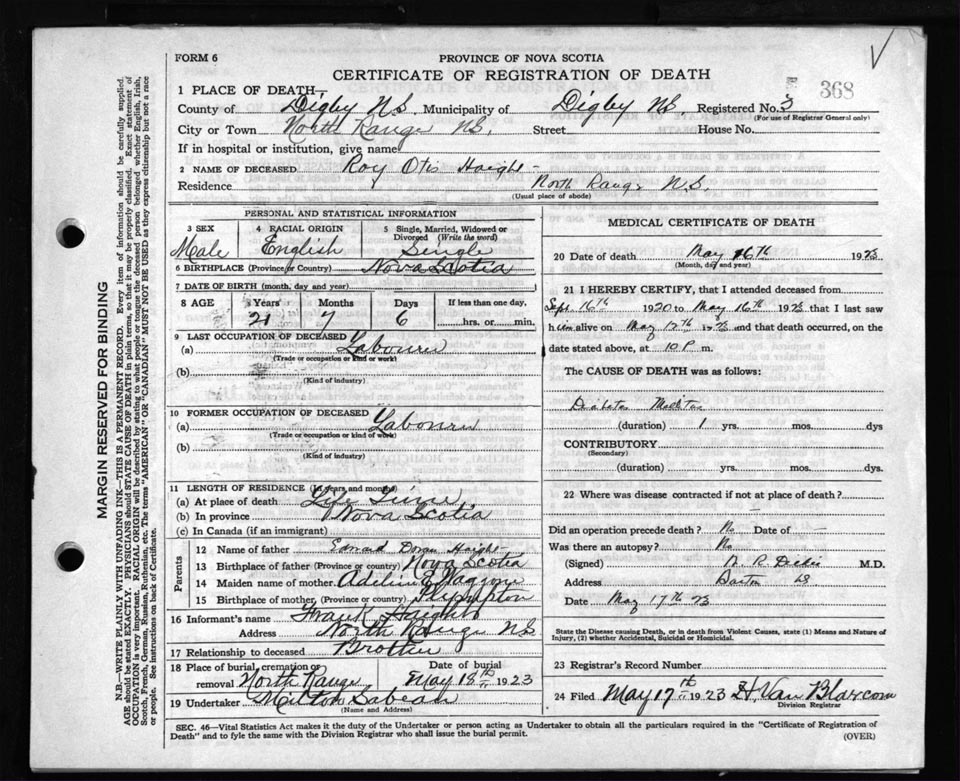 FORM 6
PROVINCE OF NOVA SCOTIA
CERTIFICATE OF REGISTRATION OF DEATH
368
1 PLACE OF DEATH
County of Digby N.S. Municipality of Digby NS Registered No. 3
(For use of Registrar General only)
City or Town North Range N.S. Street House No.
If in hospital or institution, give name
2 NAME OF DECEASED Roy Otis Haight
Residence North Range N.S.
(Usual place of abode)
PERSONAL AND STATISTICAL INFORMATION
3 SEX Male
4 RACIAL ORIGIN English
5 Single, Married, Widowed or Divorced (Write the word) Single
6 BIRTHPLACE (Province or Country) Nova Scotia
7 DATE OF BIRTH (month, day and year)
8 AGE Years Months Days If less than one day,
21 7 6 hrs. or min.
9 LAST OCCUPATION OF DECEASED
(a) Labourer
(Trade or occupation or kind or work)
(b)
(Kind of industry)
10 FORMER OCCUPATION OF DECEASED
(a) Labourer
(Trade or occupation or kind of work)
(b)
(Kind of industry)
11 LENGTH OF RESIDENCE (In years and months)
(a) At place of death Life Time
(b) In province Nova Scotia
(c) In Canada (if an immigrant)
Parents
12 Name of father Haight
13 Birthplace of father (Province or country) Nova Scotia
14 Maiden name of mother
15 Birthplace of mother (Province or country) Plympton
16 Informant's name Frank Haight
Address North Range NS
17 Relationship to deceased Brother
18 Place of burial, cremation or removal North Range
Date of burial May 18th 1923
19 Undertaker Milton Sabean
(Name and Address)
MEDICAL CERTIFICATE OF DEATH
20 Date of death May 16th 1923
(Month, day and year)
21 I HEREBY CERTIFY, that I attended deceased from
Sept 16th 1920 to May 16th 1923 that I last saw
him alive on May 12th 1923 and that death occurred, on the
date stated above, at 10 P m.
The CAUSE OF DEATH was as follows:
Diabetes
(duration) 1 yrs. mos. dys
CONTRIBUTORY
(Secondary)
(duration) yrs. mos. dys.
22 Where was disease contracted if not at place of death?
Did an operation precede death? No Date of
Was there an autopsy? No
(Signed) M.D.
Address Barton
Date May 17th 23
State the Disease causing Death, or in death from Violent Causes, state (1) Means and Nature of
Injury, (2) whether Accidental, Suicidal or Homicidal.
23 Registrar's Record Number
24 Filed May 17th 1923 H. Van Blarcom
Division Registrar
SEC. 46—Vital Statistics Act makes it the duty of the Undertaker or person acting as Undertaker to obtain all the particulars required in the "Certificate of Registration of
Death" and to fyle the same with the Division Registrar who shall issue the burial permit.
(OVER)
MARGIN RESERVED FOR BINDING
N.B.—WRITE PLAINLY WITH UNFADING INK—THIS IS A PERMANENT RECORD. Every item of information should be carefully supplied.
AGE should be stated EXACTLY. PHYSICIANS should STATE CAUSE OF DEATH in plain terms, so that it may be properly classified. Exact statement of
OCCUPATION is very important. RACIAL ORIGIN will be described by stating to what people or tongue the deceased person belonged whether English, Irish,
Scotch, French, German, Russian, Ruthenian, etc. The terms "AMERICAN" OR "CANADIAN" MUST NOT BE USED as they express citizenship but not a race
or people. See instructions on back of Certificate.